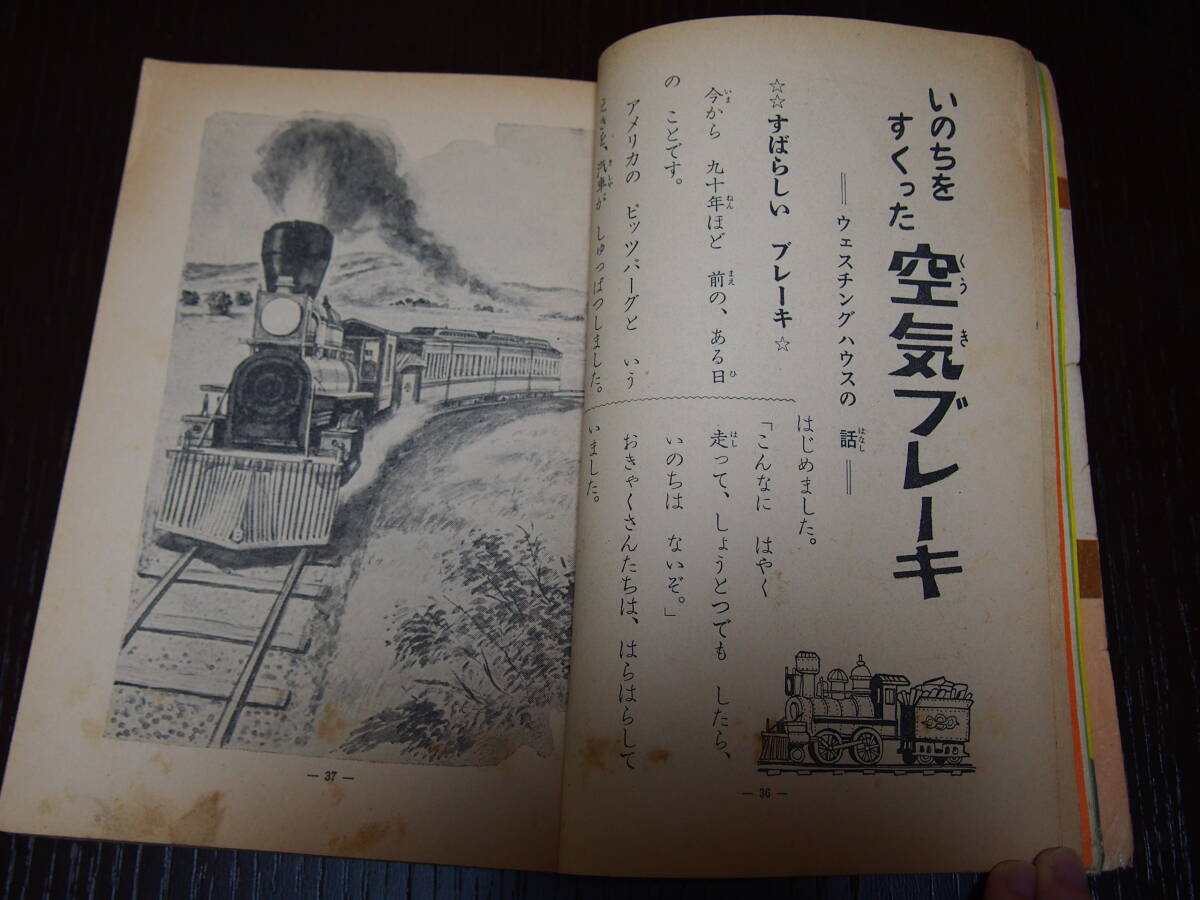 いのちを
すくった
空気ブレーキ
くうき
＝ウェスチングハウスの 話＝
はなし
☆☆すばらしい ブレーキ☆
今から 九十年ほど 前の、ある日
いま ねん まえ ひ
の ことです。
アメリカの ピッツバーグと いう
汽車が しゅっぱつしました。
きしゃ
はじめました。
「こんなに はやく
走って、しょうとつでも したら、
はし
いのちは ないぞ。」
おきゃくさんたちは、はらはらして
いました。
— 36 —
— 37 —